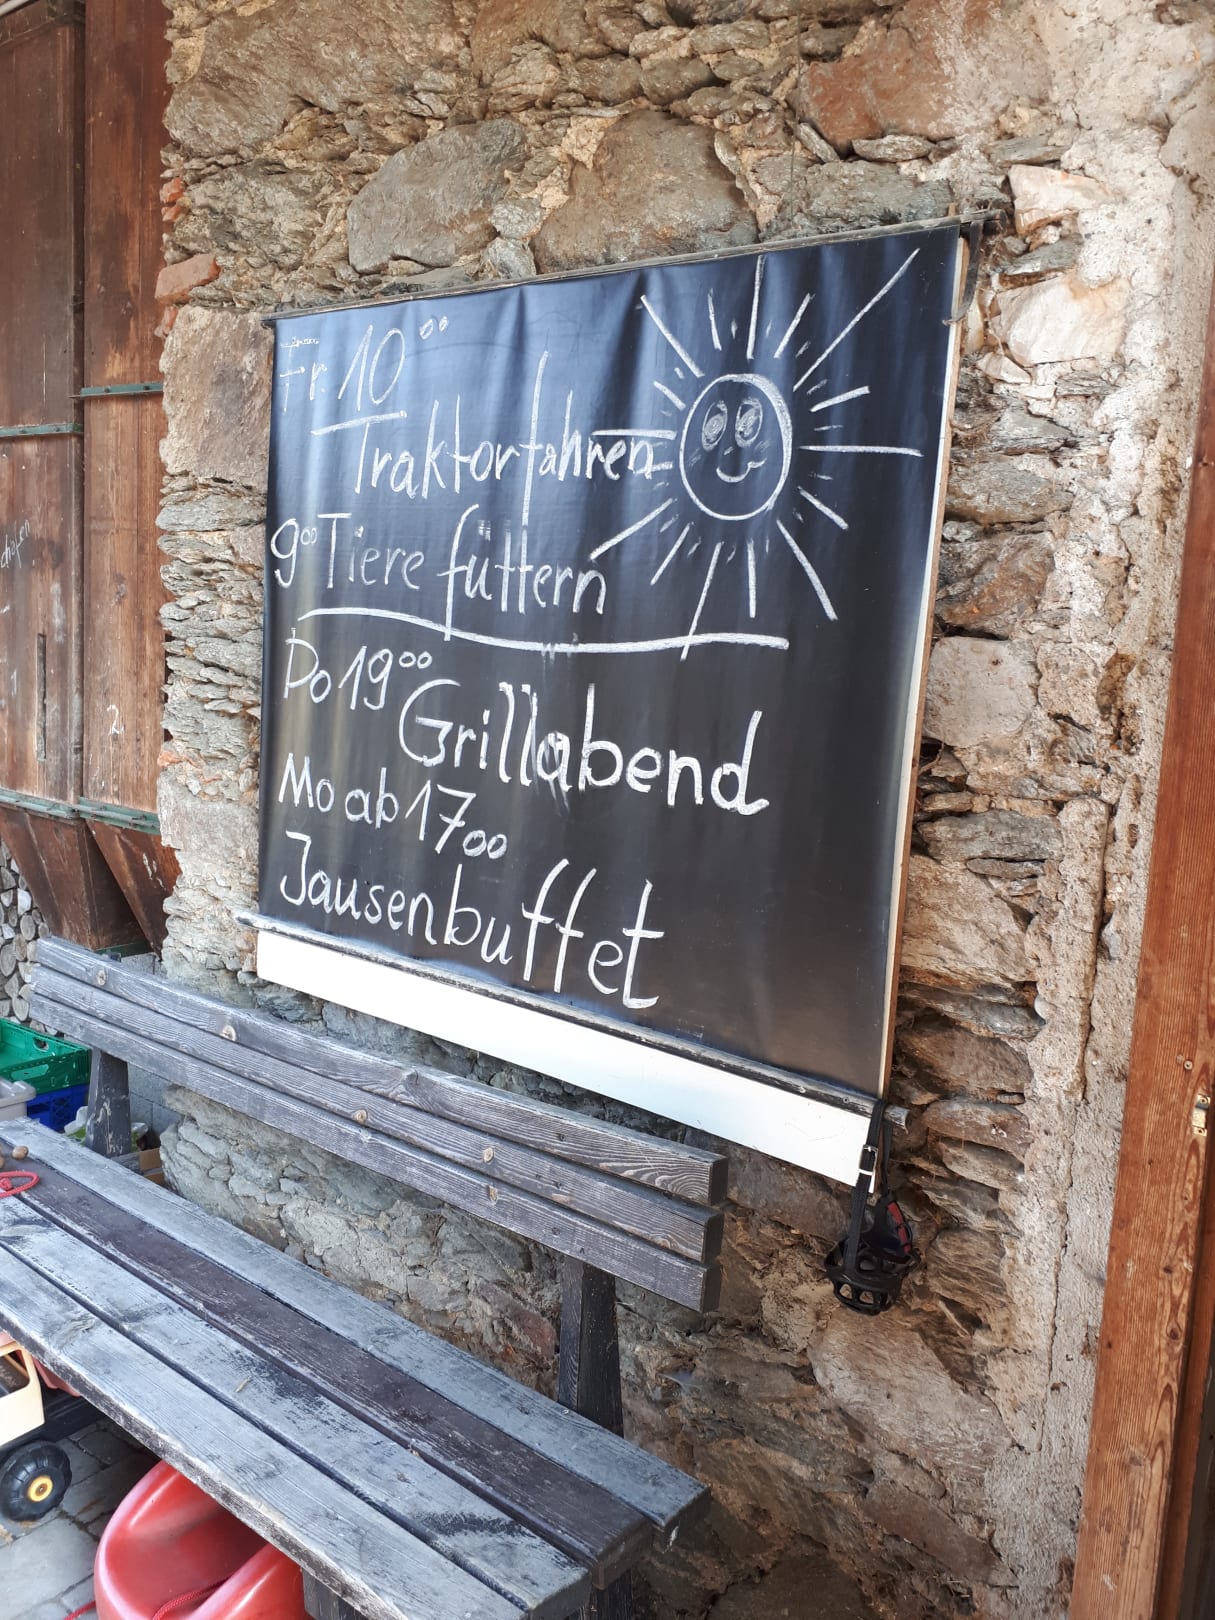 Fr. 10⁰⁰
Traktorfahren
9⁰⁰ Tiere füttern
Do 19⁰⁰
Grillabend
Mo ab 17⁰⁰
Jausenbuffet
2